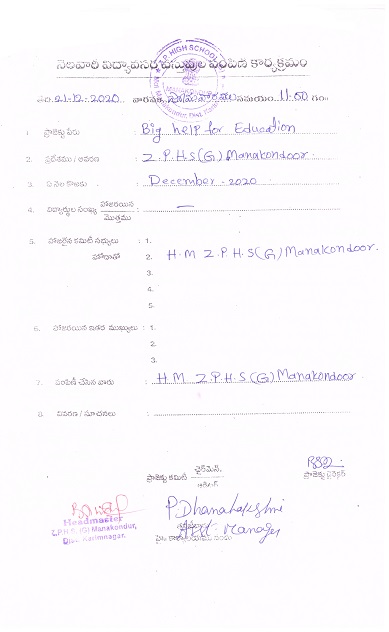 నెలవారి విద్యావసర వస్తువుల పంపిణి కార్యక్రమం
Z.P. HIGH SCHOOL
తేది. 21-12-2020 వారము సోమవారము సమయం. 11-00 గం॥
1. ప్రాజెక్టు పేరు : Big help for Education
2. ప్రదేశము / ఆవరణ : Z.P.H.S(G) Manakondoor
3. ఏ నెల కొరకు : December - 2020
4. విద్యార్థుల సంఖ్య హాజరయిన : —
మొత్తము
5. హాజరైన కమిటీ సభ్యులు : 1.
హోదాతో 2. H.M Z.P.H.S(G) Manakondoor.
3.
4.
5.
6. హాజరయిన ఇతర ముఖ్యులు : 1.
2.
3.
7. పంపిణి చేసిన వారు : H.M Z.P.H.S(G) Manakondoor.
8. వివరణ / సూచనలు :
ప్రాజెక్టు కమిటీ చైర్మెన్.
ప్రాజెక్టు డైరెక్టర్
P. Dhanalakshmi
Headmaster
Z.P.H.S. (G) Manakondur,
Dist. Karimnagar.
Manager